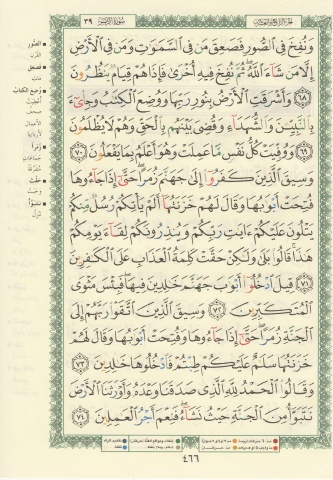 الجزء الرابع والعشرون سورة الزمر ٣٩
وَنُفِخَ فِي الصُّورِ فَصَعِقَ مَن فِي السَّمَوَتِ وَمَن فِي الْأَرْضِ
إِلَّا مَن شَآءَ اللَّهُ ثُمَّ نُفِخَ فِيهِ أُخْرَى فَإِذَا هُمْ قِيَامٌ يَنظُرُونَ
٦٨ وَأَشْرَقَتِ الْأَرْضُ بِنُورِ رَبِّهَا وَوُضِعَ الْكِتَبُ وَجِاْىٓءَ
بِالنَّبِيِّـنَ وَالشُّهَدَآءِ وَقُضِيَ بَيْنَهُم بِالْحَقِّ وَهُمْ لَا يُظْلَمُونَ
٦٩ وَوُفِّيَتْ كُلُّ نَفْسٍ مَّا عَمِلَتْ وَهُوَ أَعْلَمُ بِمَا يَفْعَلُونَ ٧٠
وَسِيقَ الَّذِينَ كَفَرُوٓا إِلَى جَهَنَّمَ زُمَرًا حَتَّىٓ إِذَا جَآءُوهَا
فُتِحَتْ أَبْوَبُهَا وَقَالَ لَهُمْ خَزَنَتُهَآ أَلَمْ يَأْتِكُمْ رُسُلٌ مِّنكُمْ
يَتْلُونَ عَلَيْكُمْ ءَايَتِ رَبِّكُمْ وَيُنذِرُونَكُمْ لِقَآءَ يَوْمِكُمْ
هَذَا قَالُوا بَلَى وَلَكِنْ حَقَّتْ كَلِمَةُ الْعَذَابِ عَلَى الْكَفِرِينَ
٧١ قِيلَ ادْخُلُوٓا أَبْوَبَ جَهَنَّمَ خَلِدِينَ فِيهَا فَبِئْسَ مَثْوَى
الْمُتَكَبِّرِينَ ٧٢ وَسِيقَ الَّذِينَ اتَّقَوْا رَبَّهُمْ إِلَى
الْجَنَّةِ زُمَرًا حَتَّىٓ إِذَا جَآءُوهَا وَفُتِحَتْ أَبْوَبُهَا وَقَالَ لَهُمْ
خَزَنَتُهَا سَلَمٌ عَلَيْكُمْ طِبْتُمْ فَادْخُلُوهَا خَلِدِينَ ٧٣
وَقَالُوا الْحَمْدُ لِلَّهِ الَّذِي صَدَقَنَا وَعْدَهُ وَأَوْرَثَنَا الْأَرْضَ
نَتَبَوَّأُ مِنَ الْجَنَّةِ حَيْثُ نَشَآءُ فَنِعْمَ أَجْرُ الْعَمِلِينَ ٧٤
٤٦٦
الصُّور
القرن
فصعق
مات
وضع الكتاب
صحف
الأعمال
لأربابها
زمراً
جماعات
متفرقة
حقّت
وجبت
نتبوّأ
ننزل